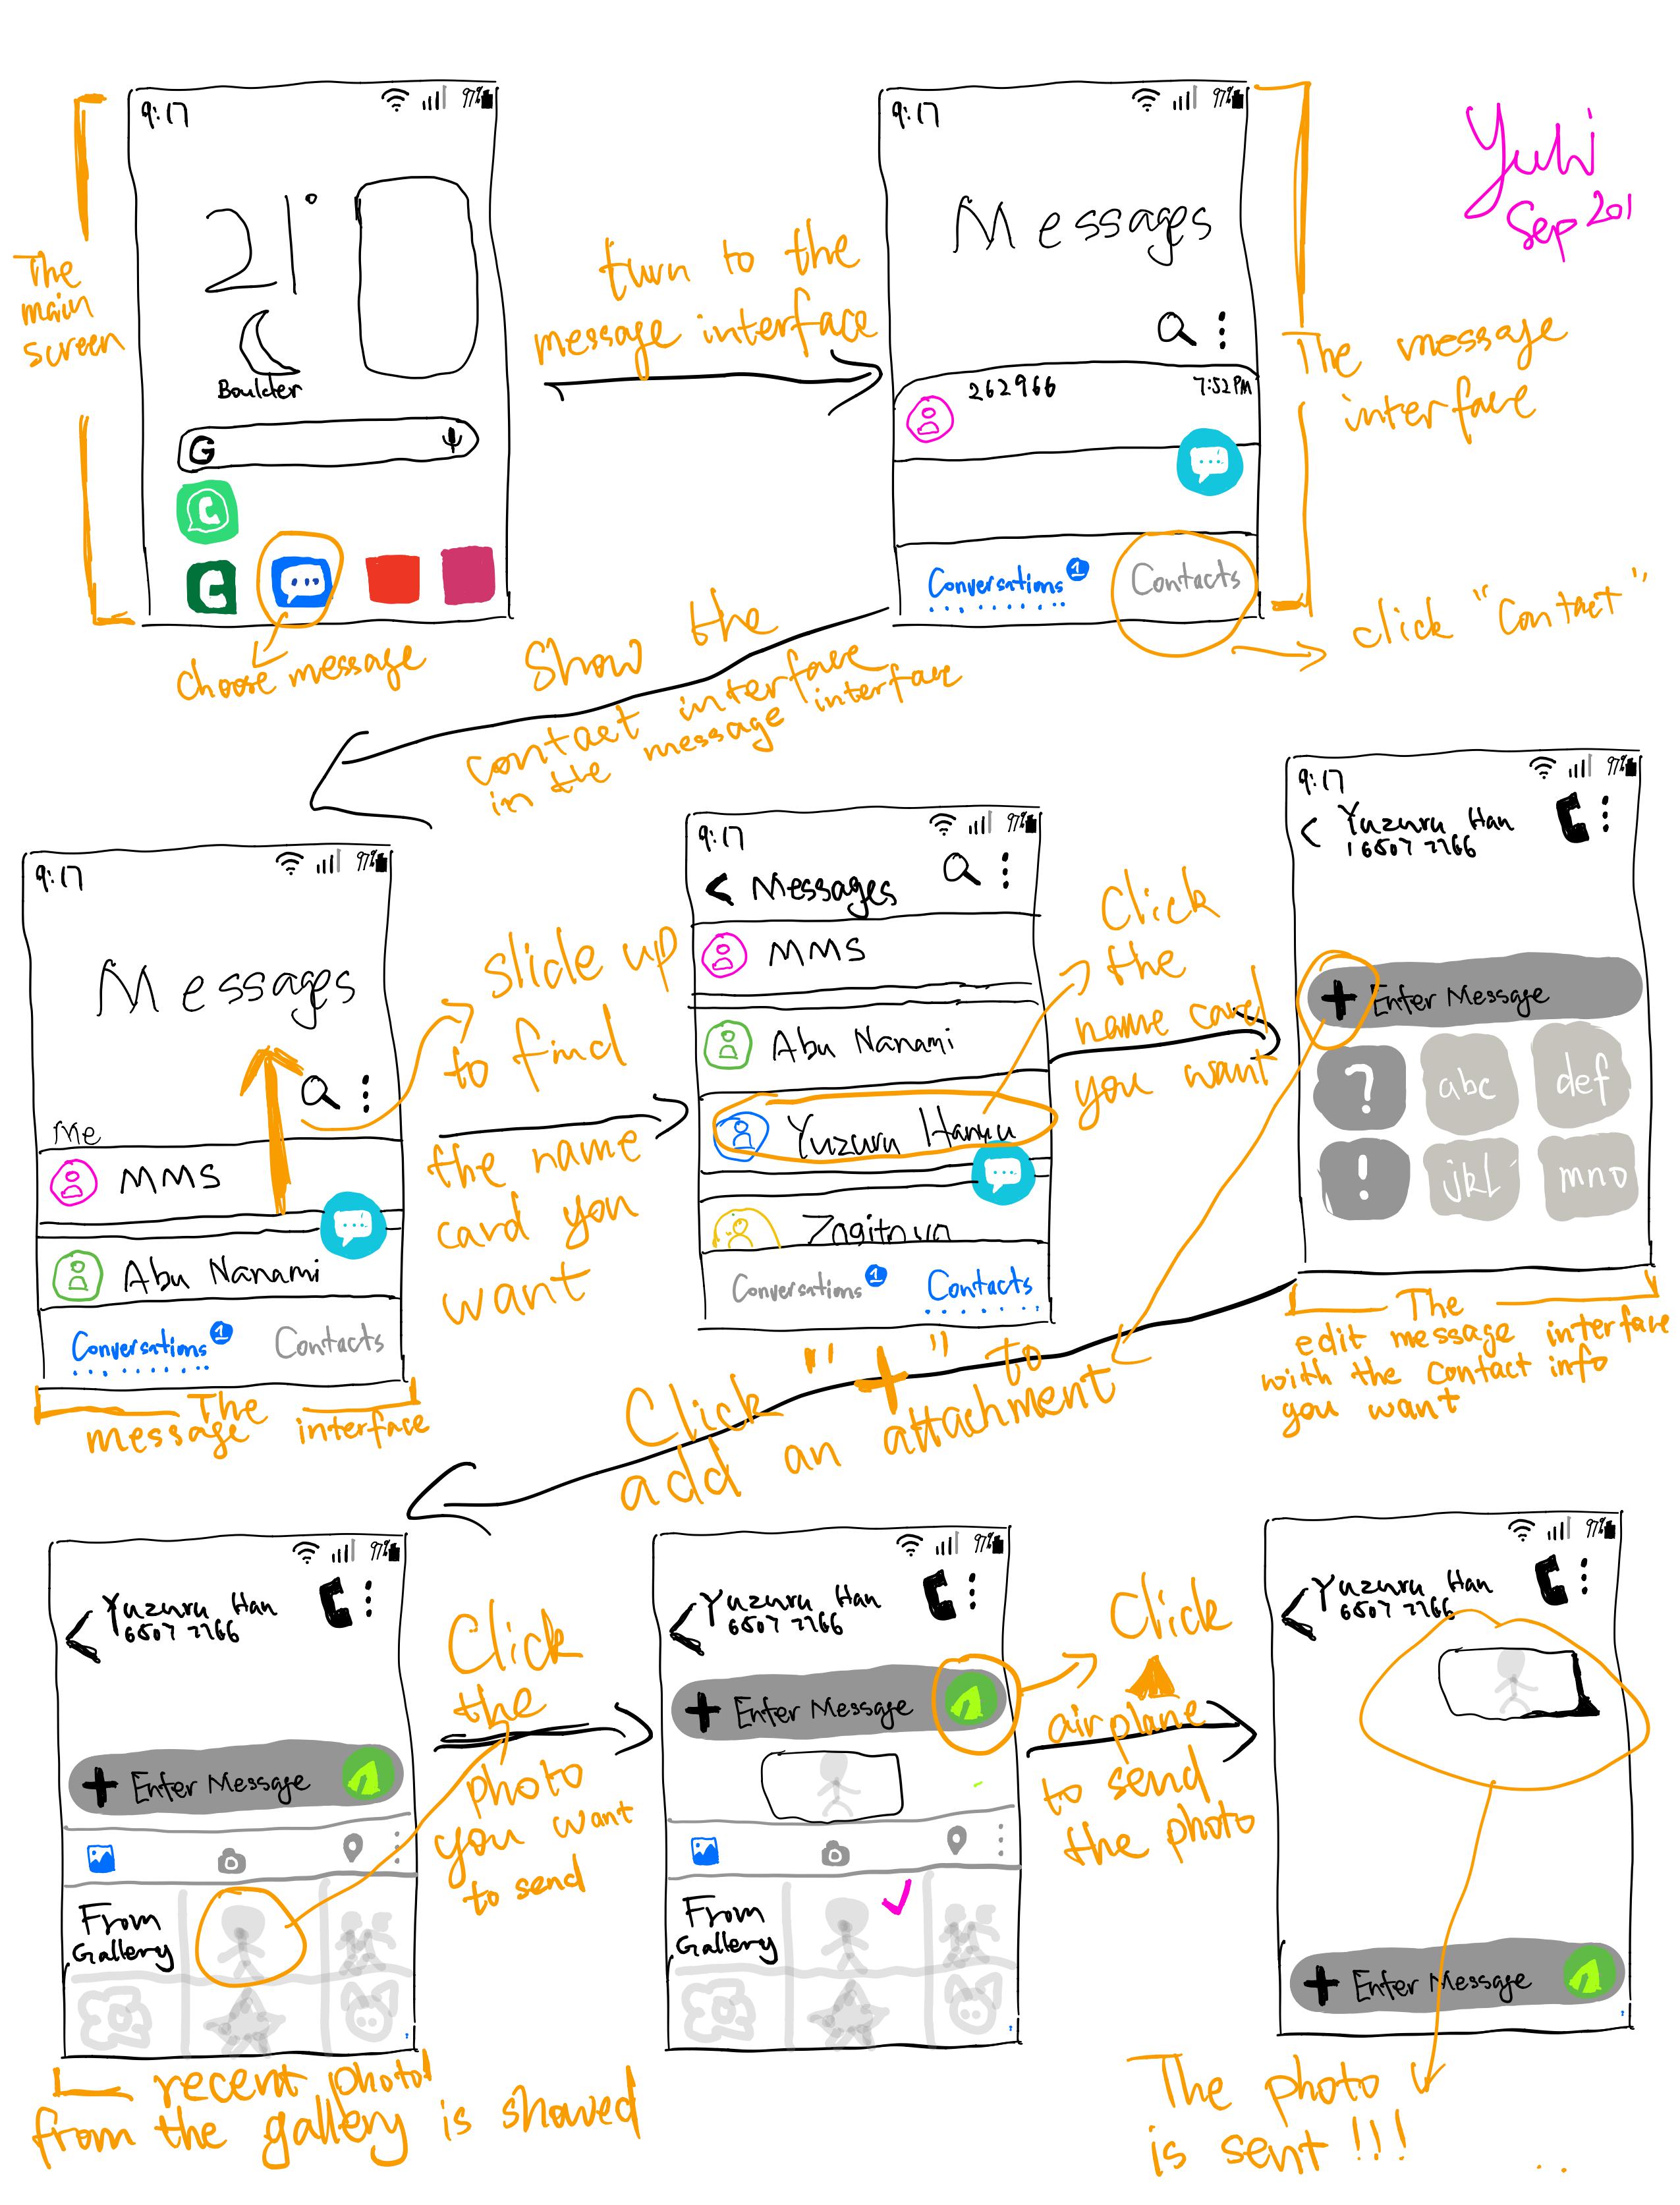 9:17
97%
21°
Boulder
G
C
C
The
main
screen
choose message
turn to the
message interface
9:17
97%
Messages
262966
7:52 PM
Conversations 1
Contacts
The message
interface
click "Contact"
Yuhi
Sep 201
Show the
contact interface
in the message interface
9:17
97%
Messages
Me
MMS
Abu Nanami
Conversations 1
Contacts
The
message interface
slide up
to find
the name
card you
want
9:17
97%
< Messages
MMS
Abu Nanami
Yuzuru Hanyu
Zagitova
Conversations 1
Contacts
Click
the
name card
you want
9:17
97%
< Yuzuru Han
16507 7766
+ Enter Message
? abc def
! jkl mno
The
edit message interface
with the contact info
you want
Click "+" to
add an attachment
97%
< Yuzuru Han
6507 7766
+ Enter Message
From
Gallery
recent photo
from the gallery is showed
Click
the
photo
you want
to send
97%
< Yuzuru Han
6507 7766
+ Enter Message
From
Gallery
Click
airplane
to send
the photo
97%
< Yuzuru Han
6507 7766
+ Enter Message
The photo
is sent!!!